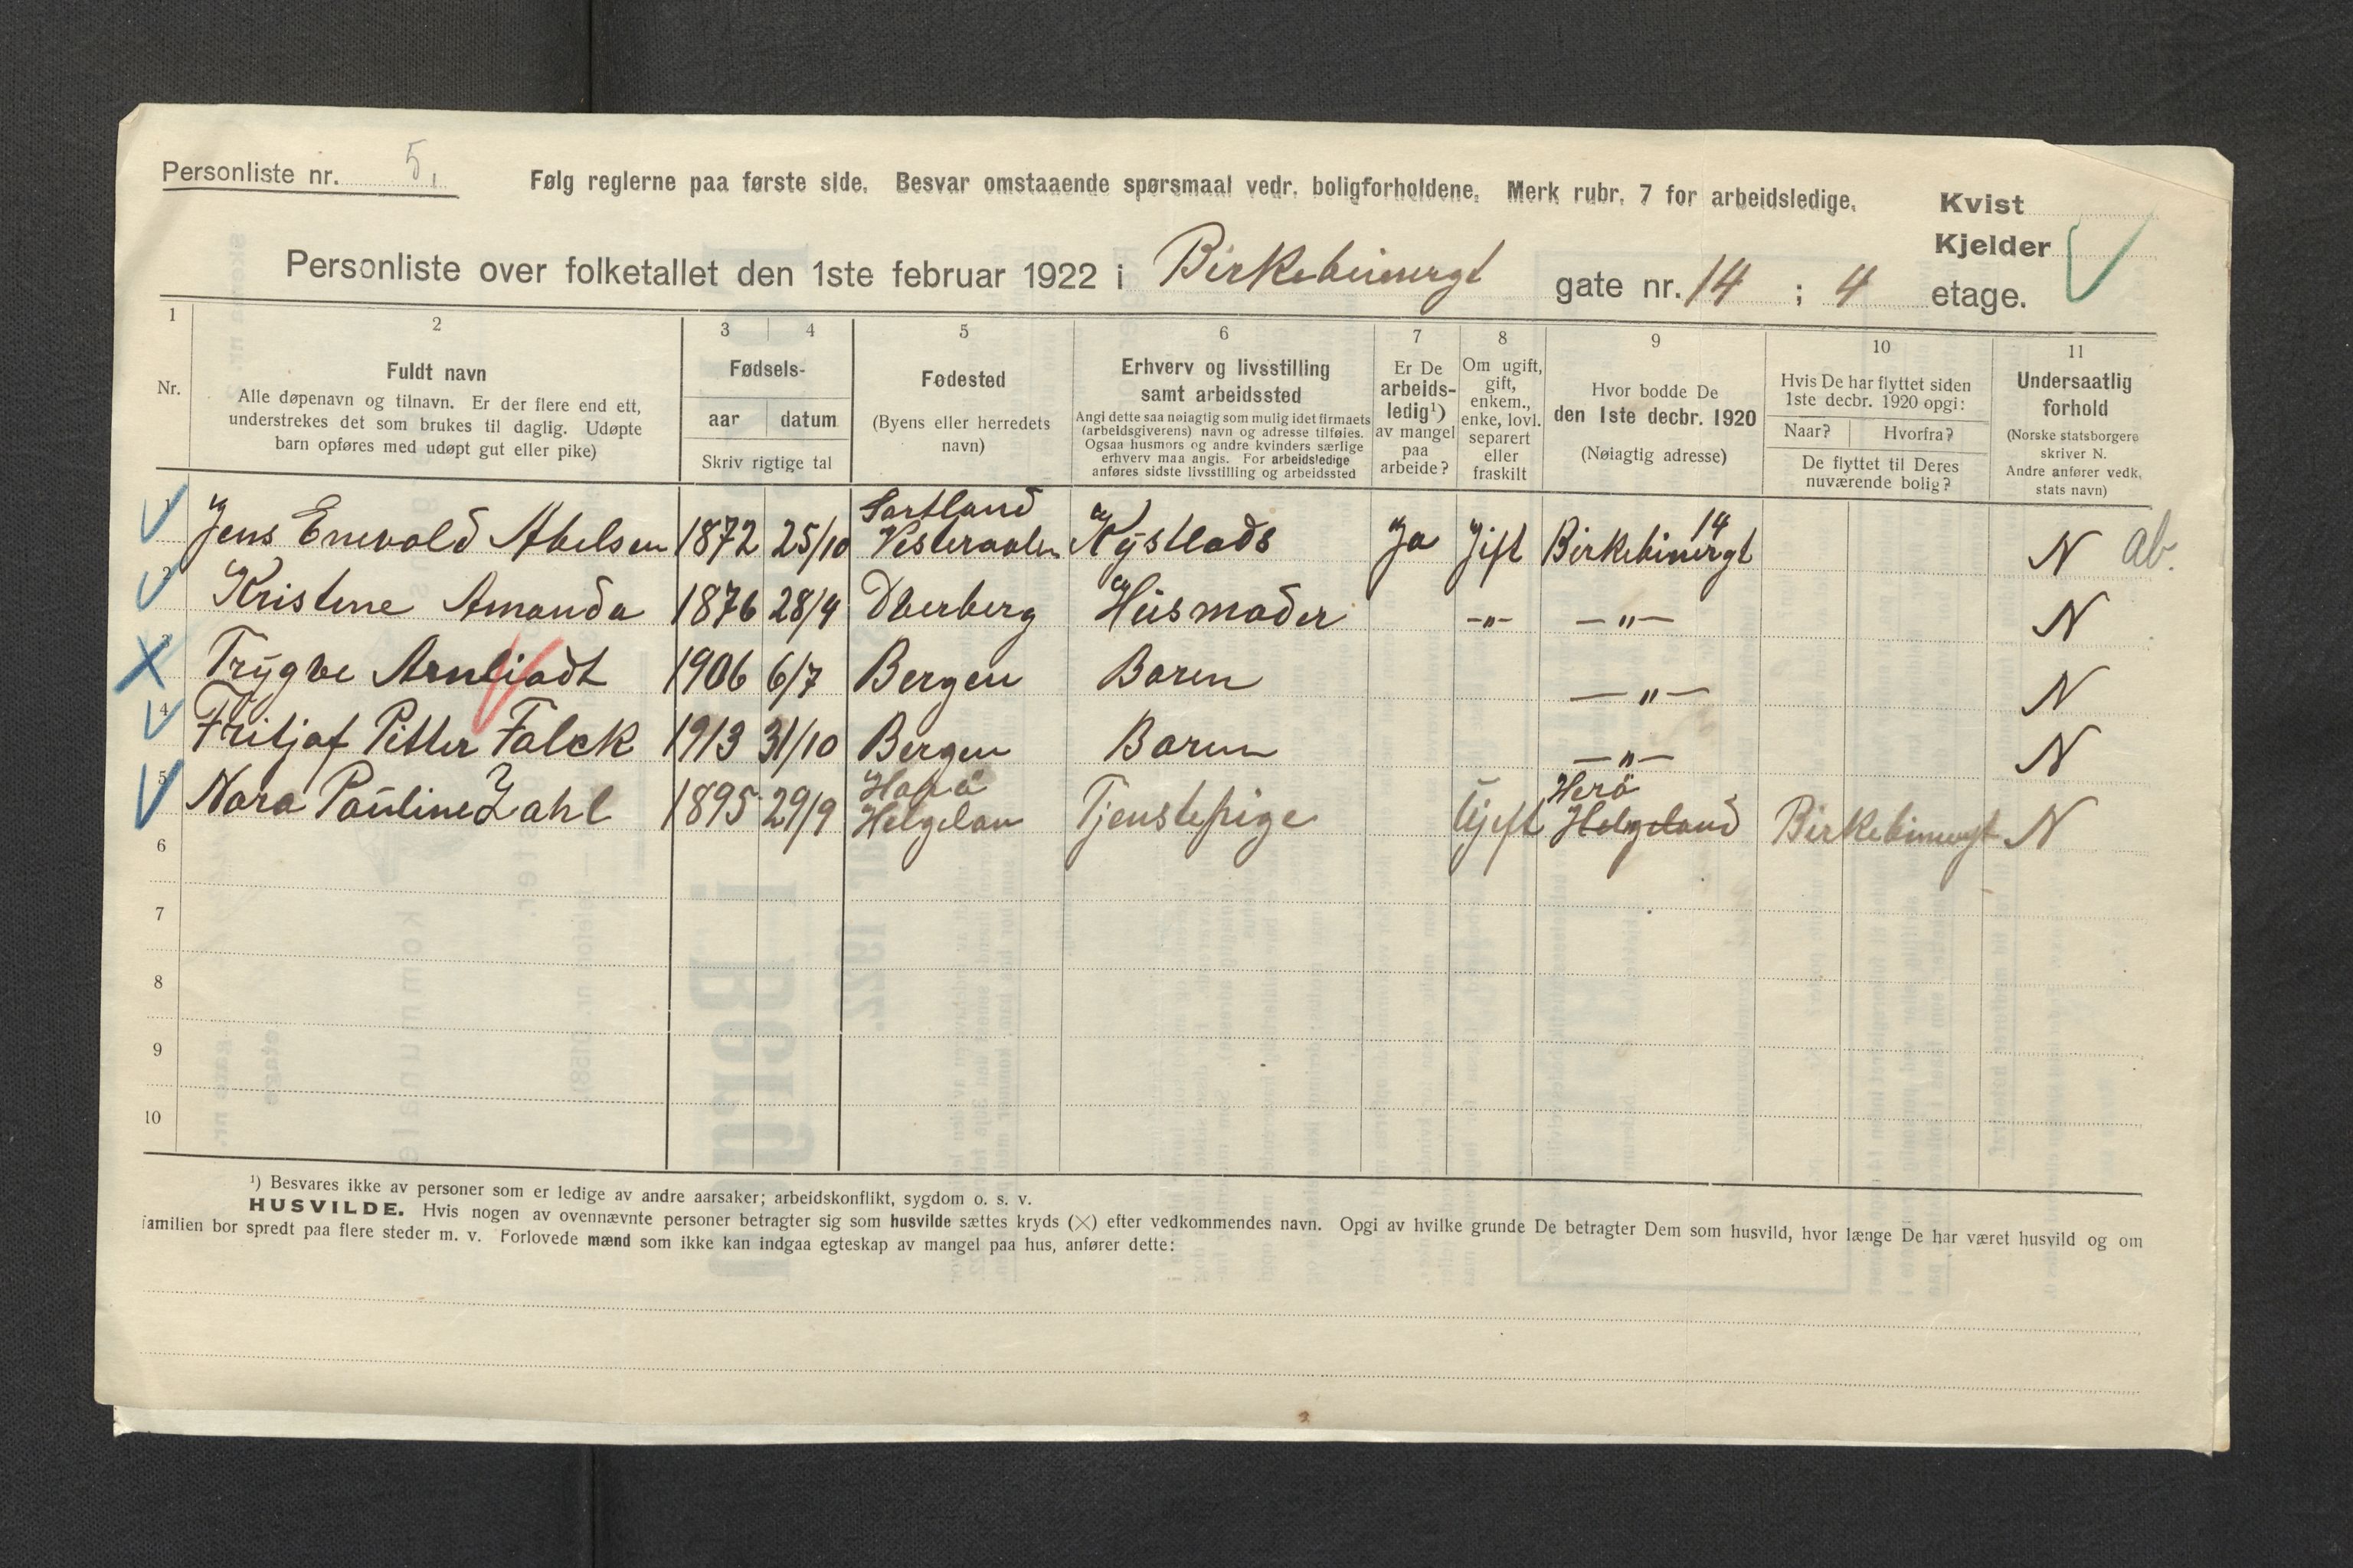 Personliste nr. 5,
Følg reglerne paa første side. Besvar omstaaende spørsmaal vedr. boligforholdene. Merk rubr. 7 for arbeidsledige.
Kvist
Kjelder
Personliste over folketallet den 1ste februar 1922 i Birkebeinergt gate nr. 14 ; 4 etage.
1 2 3 4 5 6 7 8 9 10 11
Nr.
Fuldt navn
Alle døpenavn og tilnavn. Er der flere end ett,
understrekes det som brukes til daglig. Udøpte
barn opføres med udøpt gut eller pike)
Fødsels-
aar datum
Skriv rigtige tal
Fødested
(Byens eller herredets
navn)
Erhverv og livsstilling
samt arbeidssted
Angi dette saa nøiagtig som mulig idet firmaets
(arbeidsgiverens) navn og adresse tilføies.
Ogsaa husmors og andre kvinders særlige
erhverv maa angis. For arbeidsledige
anføres sidste livsstilling og arbeidssted
Er De
arbeids-
ledig¹)
av mangel
paa
arbeide?
Om ugift,
gift,
enkem.,
enke, lovl.
separert
eller
fraskilt
Hvor bodde De
den 1ste decbr. 1920
(Nøiagtig adresse)
Hvis De har flyttet siden
1ste decbr. 1920 opgi:
Naar? Hvorfra?
De flyttet til Deres
nuværende bolig?
Undersaatlig
forhold
(Norske statsborgere
skriver N.
Andre anfører vedk.
stats navn)
1 Jens Enevold Abelsen 1872 25/10 Sortland Vesteraalen Kystlods Ja Gift Birkebinergt 14 N ab.
2 Kristine Amanda 1876 28/4 Husmoder -"- -"- N
3 Trygve 1906 6/7 Bergen Baren -"- N
4 Fritjof Pitter Falck 1913 31/10 Bergen Baren -"- N
5 Nora Pauline Zahl 1895 29/9 Helgelan Tjenestepige Ugift Herö Helgeland Birkebinergt N
6
7
8
9
10
¹) Besvares ikke av personer som er ledige av andre aarsaker; arbeidskonflikt, sygdom o. s. v.
HUSVILDE. Hvis nogen av ovennævnte personer betragter sig som husvilde sættes kryds (×) efter vedkommendes navn. Opgi av hvilke grunde De betragter Dem som husvild, hvor længe De har været husvild og om
familien bor spredt paa flere steder m. v. Forlovede mænd som ikke kan indgaa egteskap av mangel paa hus, anfører dette: